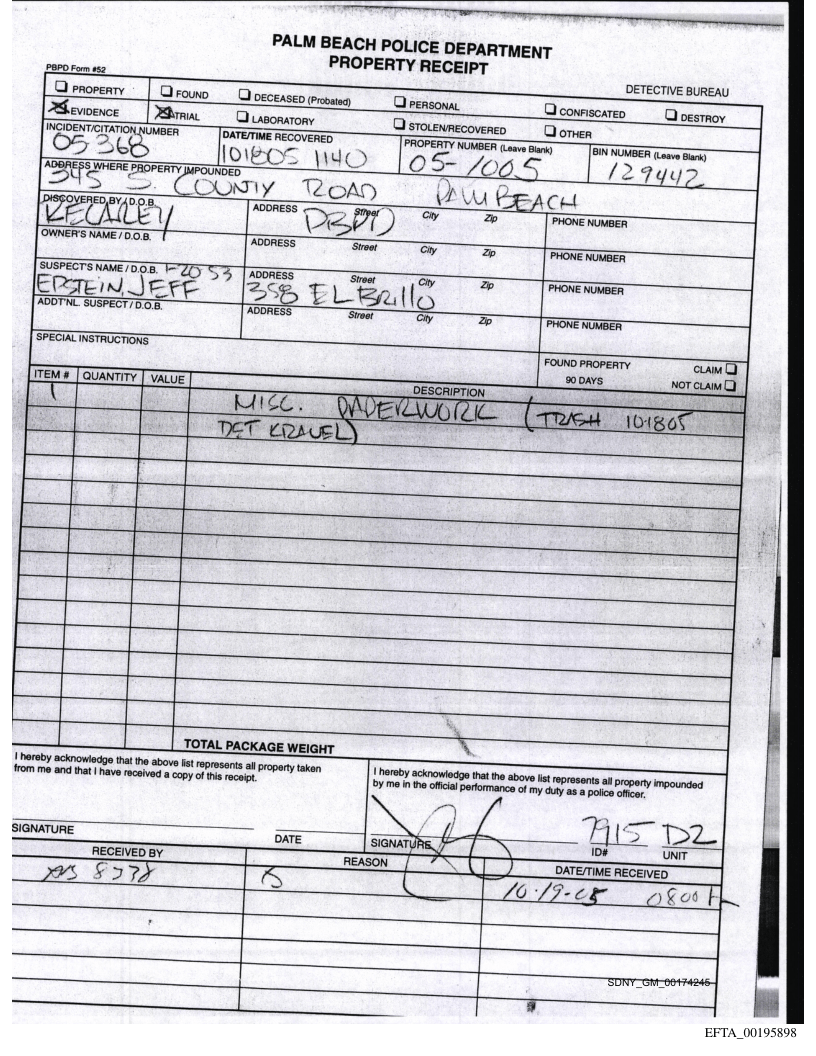 PALM BEACH POLICE DEPARTMENT
PROPERTY RECEIPT
PBPD Form #52
DETECTIVE BUREAU
PROPERTY FOUND DECEASED (Probated) PERSONAL CONFISCATED DESTROY
EVIDENCE TRIAL LABORATORY STOLEN/RECOVERED OTHER
INCIDENT/CITATION NUMBER DATE/TIME RECOVERED PROPERTY NUMBER (Leave Blank) BIN NUMBER (Leave Blank)
05 368 101805 1140 05-1005 129442
ADDRESS WHERE PROPERTY IMPOUNDED
345 S. COUNTY ROAD PALM BEACH
DISCOVERED BY / D.O.B. ADDRESS Street City Zip PHONE NUMBER
RECAREY PBPD
OWNER'S NAME / D.O.B. ADDRESS Street City Zip PHONE NUMBER
SUSPECT'S NAME / D.O.B. 1-20 53 ADDRESS Street City Zip PHONE NUMBER
EPSTEIN, JEFF 358 EL BRILLO
ADDT'NL. SUSPECT / D.O.B. ADDRESS Street City Zip PHONE NUMBER
SPECIAL INSTRUCTIONS
FOUND PROPERTY CLAIM
90 DAYS NOT CLAIM
ITEM # QUANTITY VALUE DESCRIPTION
1 MISC. PAPERWORK (TRASH 101805
DET KRAUEL)
TOTAL PACKAGE WEIGHT
I hereby acknowledge that the above list represents all property taken
from me and that I have received a copy of this receipt.
I hereby acknowledge that the above list represents all property impounded
by me in the official performance of my duty as a police officer.
7915 D2
SIGNATURE DATE SIGNATURE ID# UNIT
RECEIVED BY REASON DATE/TIME RECEIVED
10-19-05 0800
SDNY_GM_00174245
EFTA_00195898